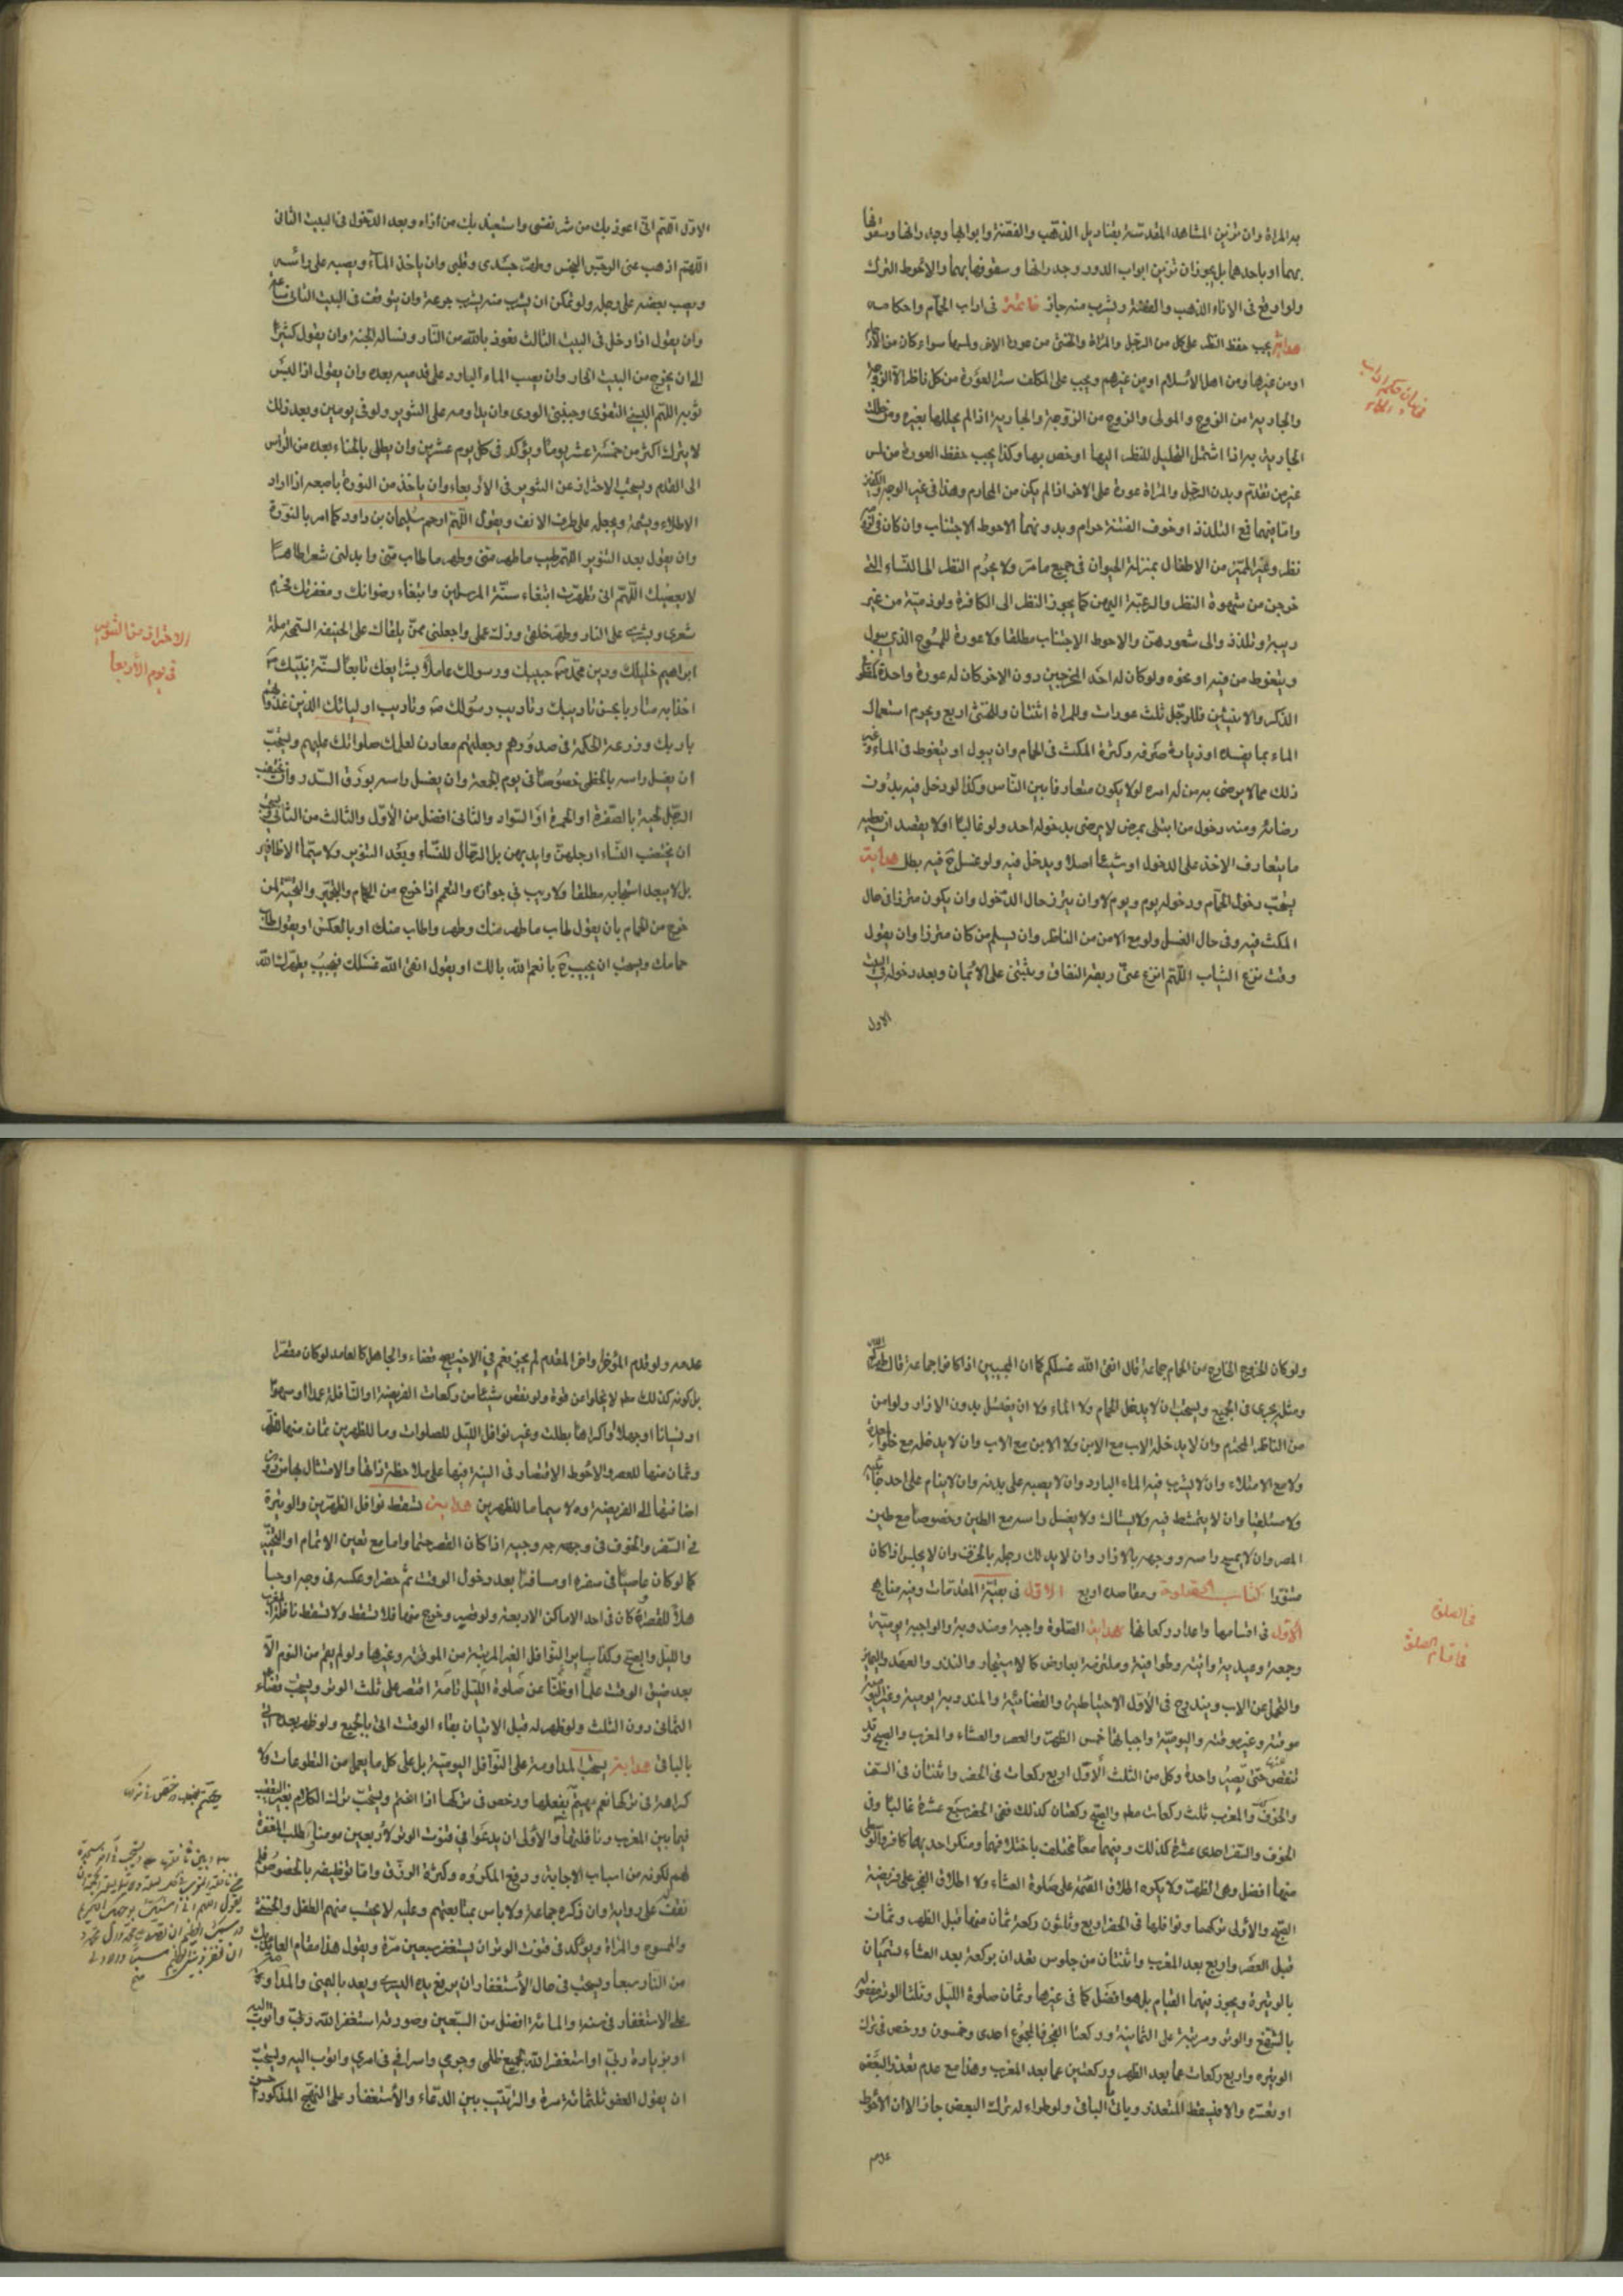 به المراة وان تزئين المشاهد المقدسة بقناديل الذهب والفضة وابوابها وجدرانها وسقوفها
بهما او باحدهما بل يجوز ان تزئين ابواب الدور وجدرانها وسقوفها بهما والاحوط الترك
ولو اوقع فى الاناء الذهب والفضة وشرب منه جاز خاتمة فى اداب الحمام واحكامه
هداية يجب حفظ النظر على كل من الرجل والمراة والخنثى من عورة الاخر ولمسها سواء كان من
او من غيرها ومن اهل الاسلام او من غيرهم ويجب على المكلف ستر العورة من كل ناظر الا الزوجة
والجارية من الزوج والمولى والزوج من الزوجة والجارية اذا لم يحللها بغيره ومن حللت
الجارية به اذا اشتمل التحليل للنظر اليها او خص بها وكذا يجب حفظ العورة من لمس
غير من تقدم وبدن الرجل والمراة عورة على الاخر اذا لم يكن من المحارم وهذا فى غير الوجه والكفين
واما فيهما فمع التلذذ او خوف الفتنة حرام وبدونهما الاحوط الاجتناب وان كان فى
نظر وغير المميز من الاطفال بمنزلة الحيوان فى جميع ما مر ولا يحرم النظر الى النساء التى
خرجن من شهوة النظر والرغبة اليهن كما يجوز النظر الى الكافرة ولو ذمية من غير
ريبة وتلذذ والى شعورهن والاحوط الاجتناب مطلقا ولا عورة للممسوح الذى يبول
ويتغوط من فيه او نحوه ولو كان له احد المخرجين دون الاخر كان له عورة واحدة
الذكر والانثيين فللرجل ثلث عورات وللمراة اثنتان وللخنثى اربع ويحرم استعمال
الماء بما يفسده او زيادة صرفه وكثرة المكث فى الحمام وان يبول او يتغوط فى الماء وغير
ذلك مما لا يرضى به من له امره لو لا يكون متعارفا بين الناس وكذا لو دخل فيه بدون
رضائه ومنه دخول من ابتلى بمرض لا يرضى بدخوله احد ولو غالبا او لا يقصد ان يعطيه
ما يتعارف الاخذ على الدخول او شيئا اصلا ويدخل فيه ولو غسل ح فيه بطل هداية
يستحب دخول الحمام ودخوله يوم ويوم لا وان يتزر حال الدخول وان يكون متزرا فى حال
المكث فيه وفى حال الغسل ولو مع الامن من الناظر وان يسلم من كان متزرا وان يقول
وقت نزع الثياب اللهم انزع عنى ربقة النفاق وثبتنى على الايمان وبعد دخوله فى البيت
الاول
الاول اللهم انى اعوذ بك من شر نفسى واستعيذ بك من اذاه وبعد الدخول فى البيت الثانى
اللهم اذهب عنى الرجس النجس وطهر جسدى وقلبى وان ياخذ الماء ويصبه على راسه
ويصب بعضه على رجله ولو تمكن ان يشرب منه ليشرب جرعة وان يتوقف فى البيت الثانى ساعة
وان يقول اذا دخل فى البيت الثالث نعوذ بالله من النار ونساله الجنة وان يقول كثيرا
الى ان يخرج من البيت الحار وان يصب الماء البارد على قدميه بعده وان يقول اذا لبس
ثوبه اللهم البسنى التقوى وجنبنى الردى وان يداومه على التنوير ولو فى يومين وبعد ذلك
لا يترك اكثر من خمسة عشر يوما ويؤكد فى كل يوم عشرين وان يطلى بالحناء بعده من الراس
الى القدم ويستحب الاحتراز عن التنوير فى الاربعاء وان ياخذ من النورة باصبعه اذا اراد
الاطلاء ويشمه ويجعله على طرف الانف ويقول اللهم ارحم سليمان بن داود كما امر بالنورة
وان يقول بعد التنوير اللهم طيب ما طهر منى وطهر ما طاب منى وابدلنى شعرا طاهرا
لا يعصيك اللهم انى تطهرت ابتغاء سنة المرسلين وابتغاء رضوانك ومغفرتك فحرم
شعرى وبشرى على النار وطهر خلقى وزك عملى واجعلنى ممن يلقاك على الحنيفية السمحة ملة
ابراهيم خليلك ودين محمد حبيبك ورسولك عاملا بشرايعك تابعا لسنة نبيك
اخذا به متادبا بحسن تاديبك وتاديب رسولك وتاديب اوليائك الذين غذوتهم
بادبك وزرعت الحكمة فى صدورهم وجعلتهم معادن لعلمك صلواتك عليهم ويستحب
ان يغسل راسه بالخطمى خصوصا فى يوم الجمعة وان يغسل راسه بورق السدر وان
الرجل لحيته بالصفرة او الحمرة او السواد والثانى افضل من الاول والثالث من الثانى
ان يختضب النساء ارجلهن وايديهن بل الرجال للنساء وبعد التنوير ولا سيما الاظافير
بل لا يبعد استحبابه مطلقا ولا ريب فى جوازه والتعمم اذا خرج من الحمام والتحية لمن
خرج من الحمام بان يقول طاب ما طهر منك وطهر ما طاب منك او بالعكس او يقول طاب
حمامك ويستحب ان يجيب ح بانعم الله بالك او يقول انقى الله غسلك فيجيب يطهرك الله
الاحتراز من التنوير
فى يوم الاربعا
ولو كان الخروج الخارج من الحمام جماعة قال انقى الله غسلكم كما ان المجيبين اذا كانوا جماعة قال
ومثله يجرى فى الجميع ويستحب ان لا يدخل الحمام ولا الماء ولا ان يغتسل بدون الازار ولو امن
من الناظر المحترم وان لا يدخله الاب مع الابن ولا الابن مع الاب وان لا يدخله مع خلو
ولا مع الامتلاء وان لا يشرب فيه الماء البارد وان لا يصبه على بدنه وان لا ينام على احد
ولا مستلقيا وان لا يتمشط فيه ولا يستاك ولا يغسل راسه مع الطين وخصوصا مع طين
المصر وان لا يمسح راسه ووجهه بالازار وان لا يدلك رجله بالخزف وان لا يجلس اذا كان
متنورا كتاب الصلوة ومقاصده اربع الاول فى بقية المقدمات وفيه مناهج
الاول فى اقسامها واعداد ركعاتها هداية الصلوة واجبة ومندوبة والواجبة يومية
وجمعة وعيدية وايته وطوافية وملتزمة بعارض كالاستيجار والنذر والعهد واليمين
والتحمل عن الاب ويندرج فى الاول الاحتياطية والقضائية والمندوبة يومية وغير
موقتة وغير موقتة واليومية واجباتها خمس الظهر والعصر والعشاء والمغرب والصبح وقد
تنقص حتى تصير واحدة وكل من الثلث الاول اربع ركعات فى الحضر واثنتان فى السفر
والخوف والمغرب ثلث ركعات مط والصبح ركعتان كذلك ففى الحضر سبع عشرة غالبا وفى
الخوف والسفر احدى عشرة كذلك وفيهما معا تختلف باختلافهما ومنكر احديهما كافر
منها افضل وهى الظهر ولا يكره اطلاق العتمة على صلوة العشاء ولا اطلاق الفجر على فريضة
الصبح والاولى تركهما ونوافلها فى الحضر اربع وثلثون ركعة ثمان منها قبل الظهر وثمان
قبل العصر واربع بعد المغرب واثنتان من جلوس تعدان بركعة بعد العشاء تسميان
بالوتيرة ويجوز فيهما القيام بل هو افضل كما فى غيرها وثمان صلوة الليل وثلث الوتر
بالشفع والوتر ومرتبة على الثمانية وركعتا الفجر فالمجموع احدى وخمسون ورخص فى ترك
الوتيرة واربع ركعات مما بعد الظهر وركعتين مما بعد المغرب وهذا مع عدم تعذر البعض
او تعسره والا فيسقط المتعذر وياتى الباقى ولو طراء له ترك البعض جاز الا ان الاحوط
عدمه
فى الصلوة
فى اقسام الصلوة
عدمه ولو قدم المؤخر واخر المقدم لم يجز نعم فى الاخير يصح قضاء والجاهل كالعامد لو كان مقصرا
بل كونه كذلك مط لا يخلوا من قوة ولو نقص شيئا من ركعات الفريضة او النافلة عمدا او سهوا
او نسيانا او جهلا او اكراها بطلت وغير نوافل الليل للصلوات وما للظهرين ثمان منها للظهر
وثمان منها للعصر والاحوط الاقتصار فى النية فيها على ملاحظة ذاتها والامتثال بها من دون
اضافتها الى الفريضة ولا سيما ما للظهرين هداية تسقط نوافل الظهرين والوتيرة
فى السفر والخوف فى وجهه جه وجيه اذا كان القصر حتما واما مع تعين الاتمام او التخيير
كما لو كان عاصيا فى سفره او مسافرا بعد دخول الوقت ثم حضر او عكسه فى وجه اوجبا
محلا للقصر او كان فى احد الاماكن الاربعة ولو خرج منها فلا تسقط ولا تسقط نافلة المغرب
والليل والصبح وكذا ساير النوافل الغير المرتبة من الموقتة وغيرها ولو لم يقم من النوم الا
بعد ضيق الوقت علما او ظنا عن صلوة الليل تامة اقتصر على ثلث الوتر ويستحب قضاء
الثمانى دون الثلث ولو ظهر له قبل الاتيان بقاء الوقت اتى بالجميع ولو ظهر بعده اتى
بالباقى هداية يستحب المداومة على النوافل اليومية بل على كل ما يعمل من التطوعات ولا
كراهة فى تركها نعم يهتم بفعلها ورخص فى تركها اذا اغتم ويستحب ترك الكلام بغير التعقيب
فيما بين المغرب ونافلتها والاولى ان يدعوا فى قنوت الوتر لاربعين مومنا بطلب المغفرة
لهم لكونه من اسباب الاجابة ودفع المكروه وكثرة الرزق واما توظيفه بالخصوص فلم
نقف على رواية وان ذكره جماعة ولا باس بمتابعتهم وعليه لا يحسب منهم الطفل والخنثى
والممسوح والمراة ويؤكد فى قنوت الوتر ان يستغفر سبعين مرة ويقول هذا مقام العائذ بك
من النار سبعا ويستحب فى حال الاستغفار ان يرفع يده اليسرى ويعد باليمنى والمداومة
على الاستغفار فى سنة والمائة افضل من السبعين وصورته استغفر الله ربى واتوب اليه
او بزيادة ربى او استغفر الله لجميع ظلمى وجرمى واسرافى فى امرى واتوب اليه ويستحب
ان يقول العفو ثلثمائة مرة والترتيب بين الدعاء والاستغفار على النهج المذكور